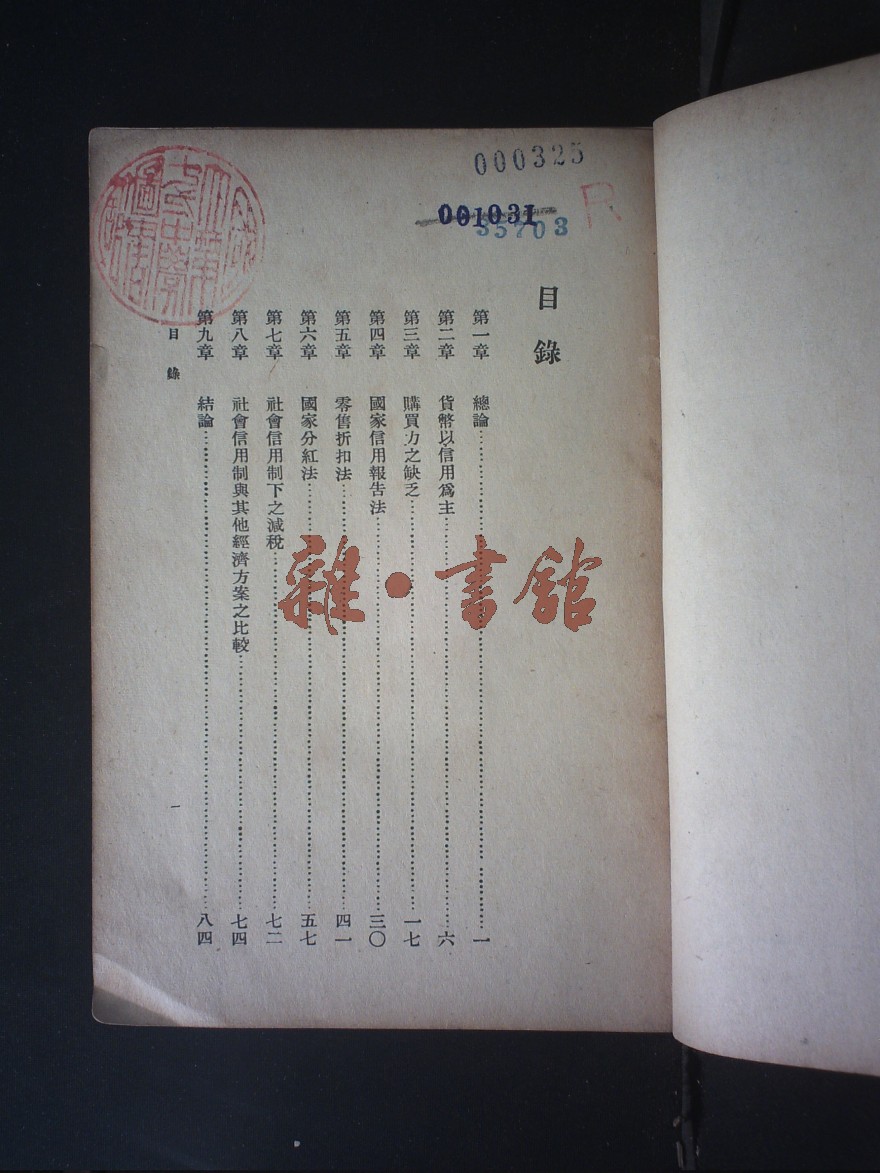 000325
001031
35703
R
目錄
第一章 總論 一
第二章 貨幣以信用爲主 六
第三章 購買力之缺乏 一七
第四章 國家信用報告法 三〇
第五章 零售折扣法 四一
第六章 國家分紅法 五七
第七章 社會信用制下之減稅 七二
第八章 社會信用制與其他經濟方案之比較 七四
第九章 結論 八四
目錄
一
雜·書館